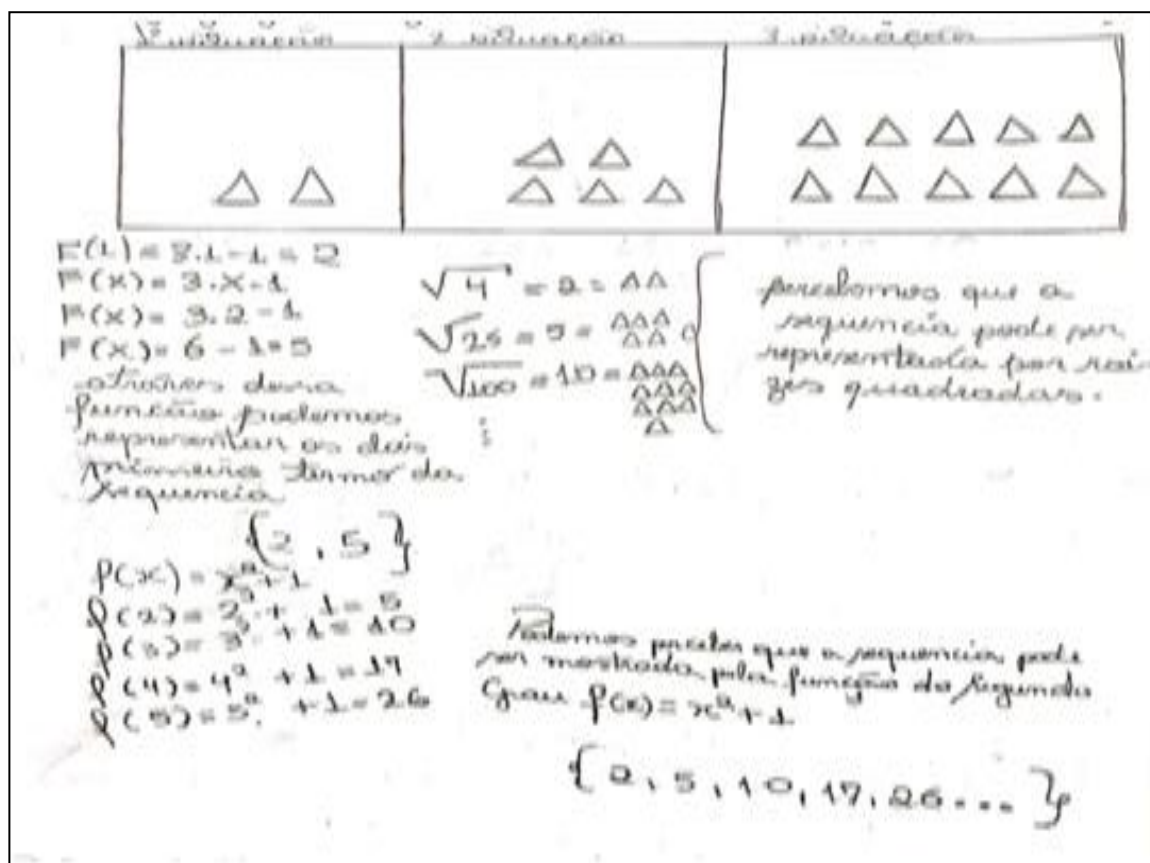 1ª situação 2ª situação 3ª situação
F(1) = 3.1-1 = 2
F(x) = 3.x-1
F(x) = 3.2-1
F(x) = 6-1=5
atraves dessa
função podemos
representar os dois
primeiros termos da
sequencia
{2, 5}
√4 = 2 =
√25 = 5 =
√100 = 10 =
⋮
percebemos que a
sequencia pode ser
representada por raí-
zes quadradas.
f(x) = x² + 1
f(2) = 2² + 1 = 5
f(3) = 3² + 1 = 10
f(4) = 4² + 1 = 17
f(5) = 5² + 1 = 26
Podemos perceber que a sequencia pode
ser mostrada pela função do segundo
Grau f(x) = x² + 1
{2, 5, 10, 17, 26 ... }